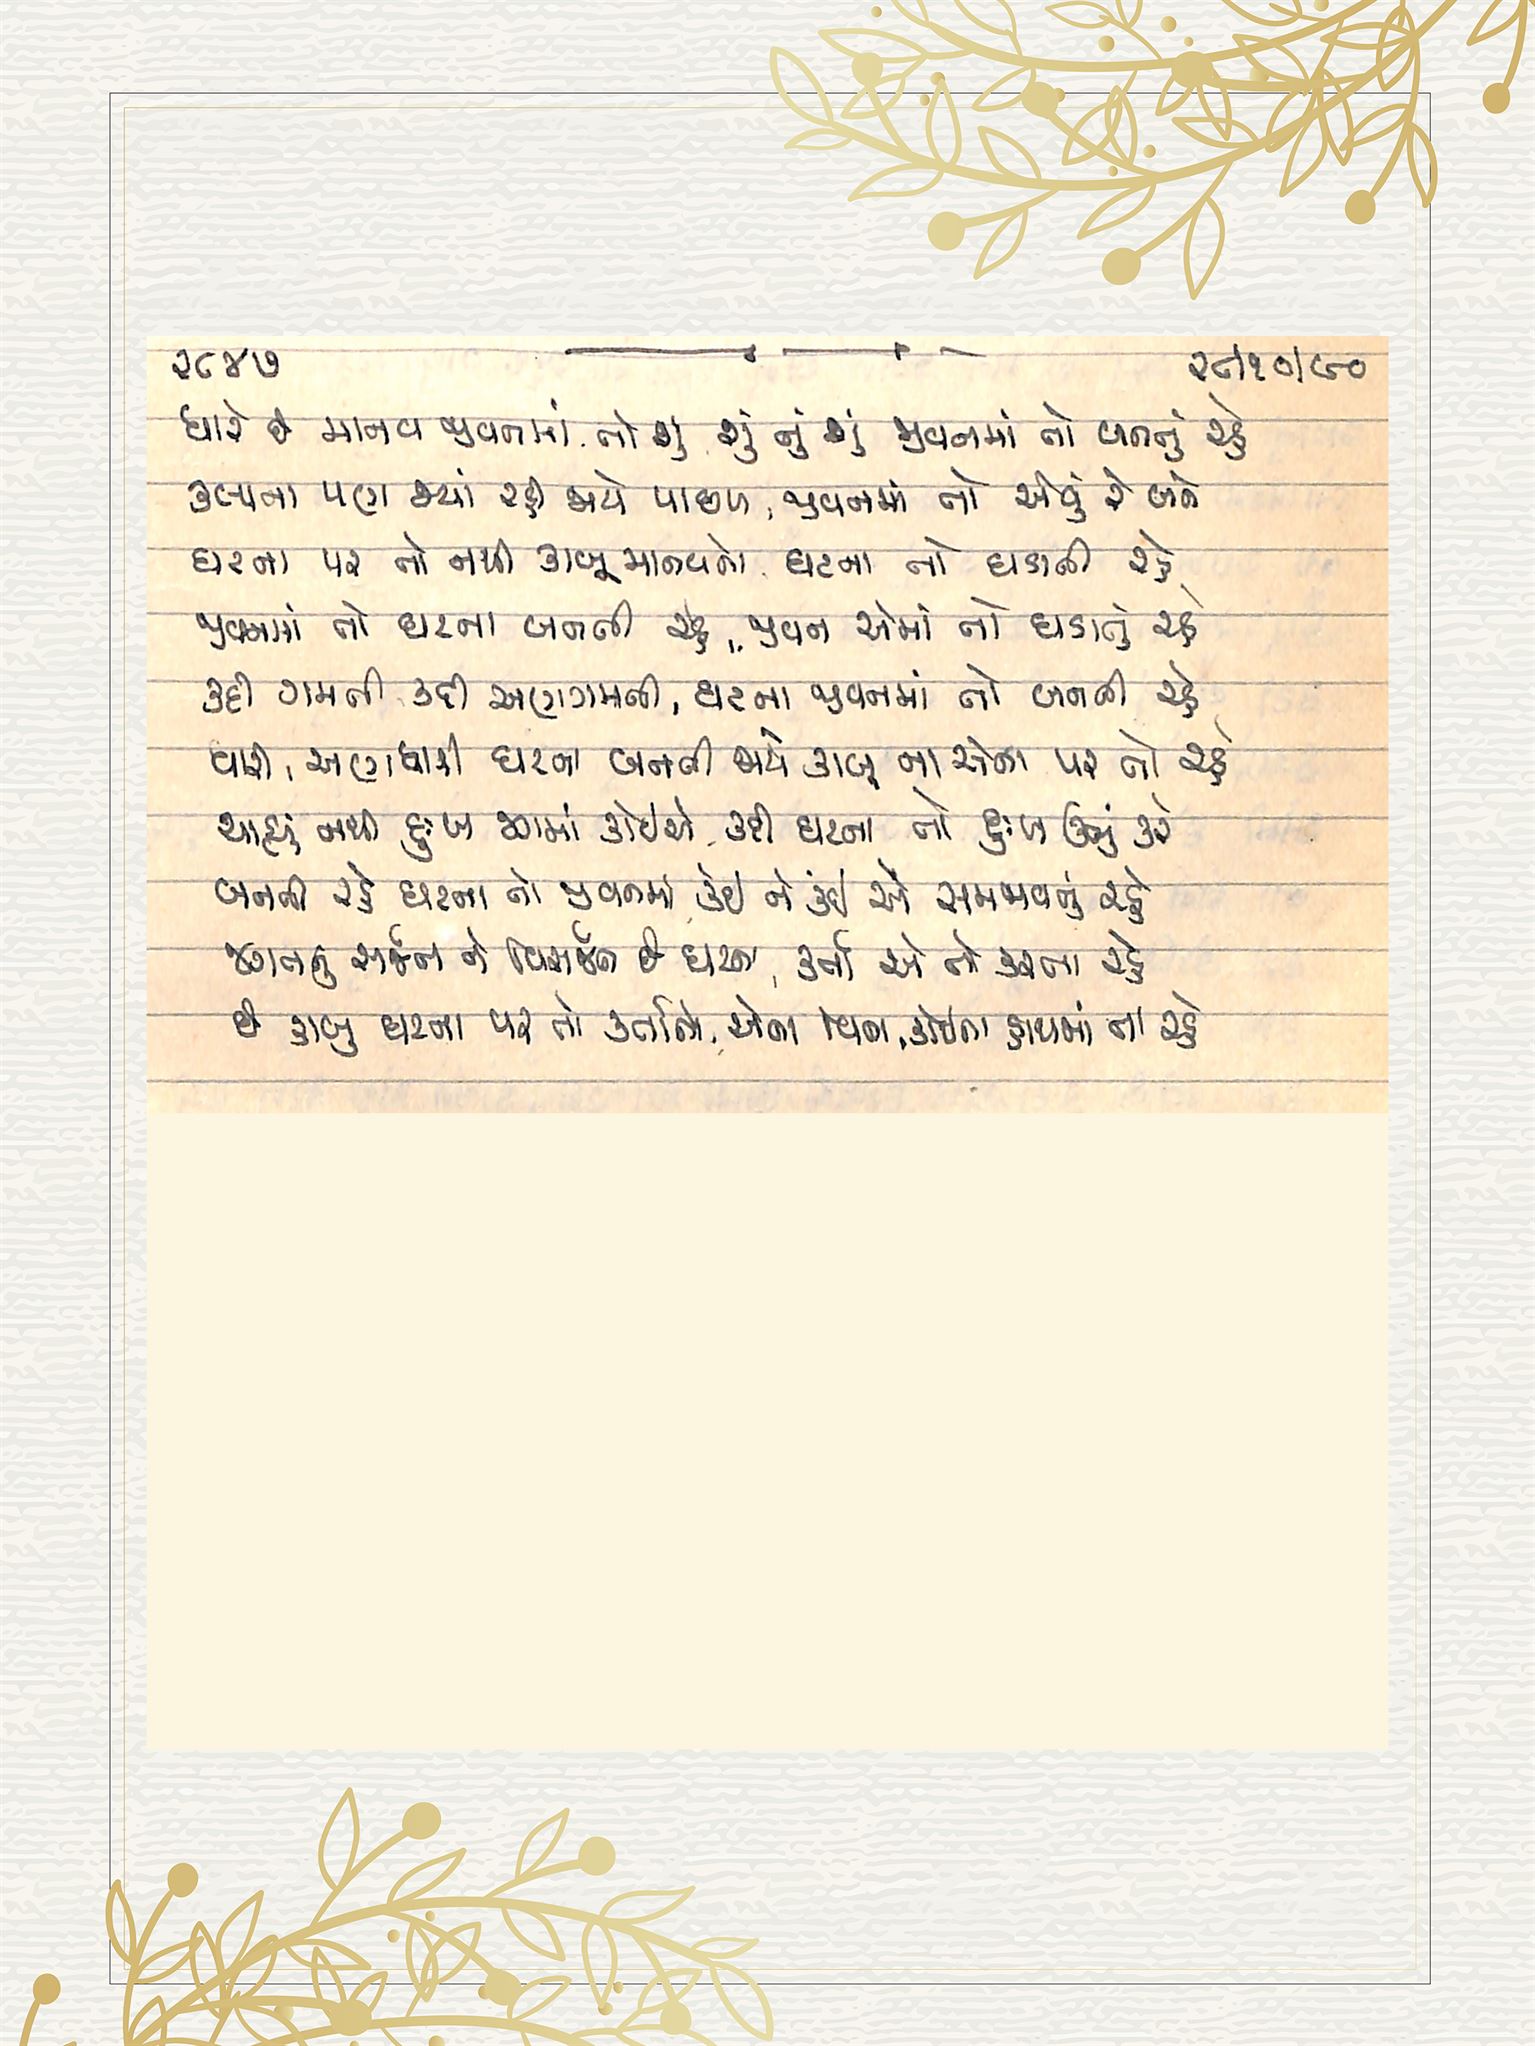 ૨૮૪૭ ૨૯/૧૦/૯૦
ધારે છે માનવ જીવનમાં. તો શું શું નું શું જીવનમાં તો બનતું રહે
કલ્પના પણ ક્યાં રહી જાયે પાછળ, જીવનમાં તો એવું રે બને
ઘટના પર તો નથી કાબૂ માનવનો. ઘટના તો ઘડાતી રહે
જીવનમાં તો ઘટના બનતી રહે, જીવન એમાં તો ઘડાતું રહે
કદી ગમતી કદી અણગમતી, ઘટના જીવનમાં તો બનતી રહે
ધારી, અણધારી ઘટના બનતી જાયે કાબૂ ના એના પર તો રહે
ચાહ્યું નથી દુઃખ જગમાં કોઈએ કદી ઘટના તો દુઃખ ઊભું કરે
બનતી રહે ઘટના તો જીવનમાં કંઈ ને કંઈ એ સમજાવતું રહે
જગતનું સર્જન ને વિસર્જન છે ઘટના, કર્તા એ તો કરતા રહે
છે કાબુ ઘટના પર તો કર્તાનો. એના વિના, કોઈના હાથમાં ના રહે